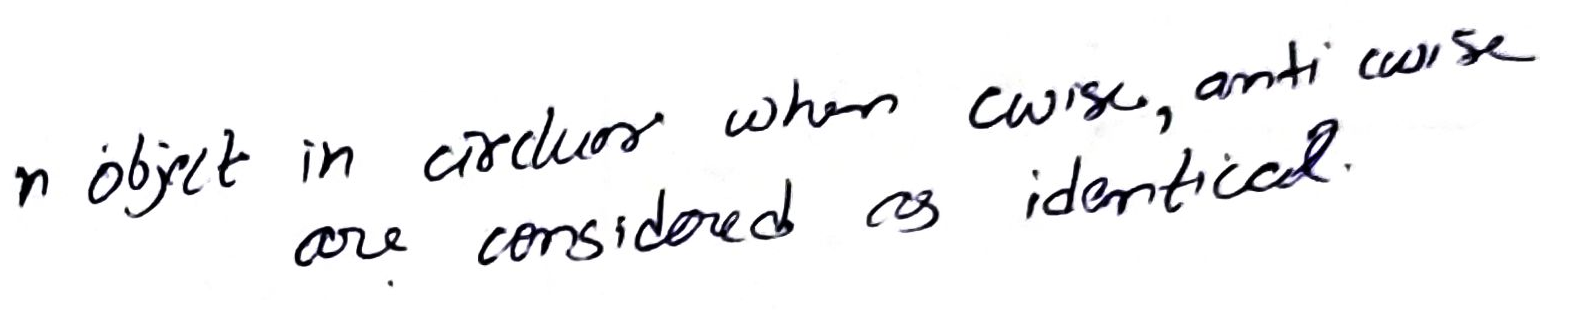 n object in circluar when cwise, anti cwise
are considered as identical.